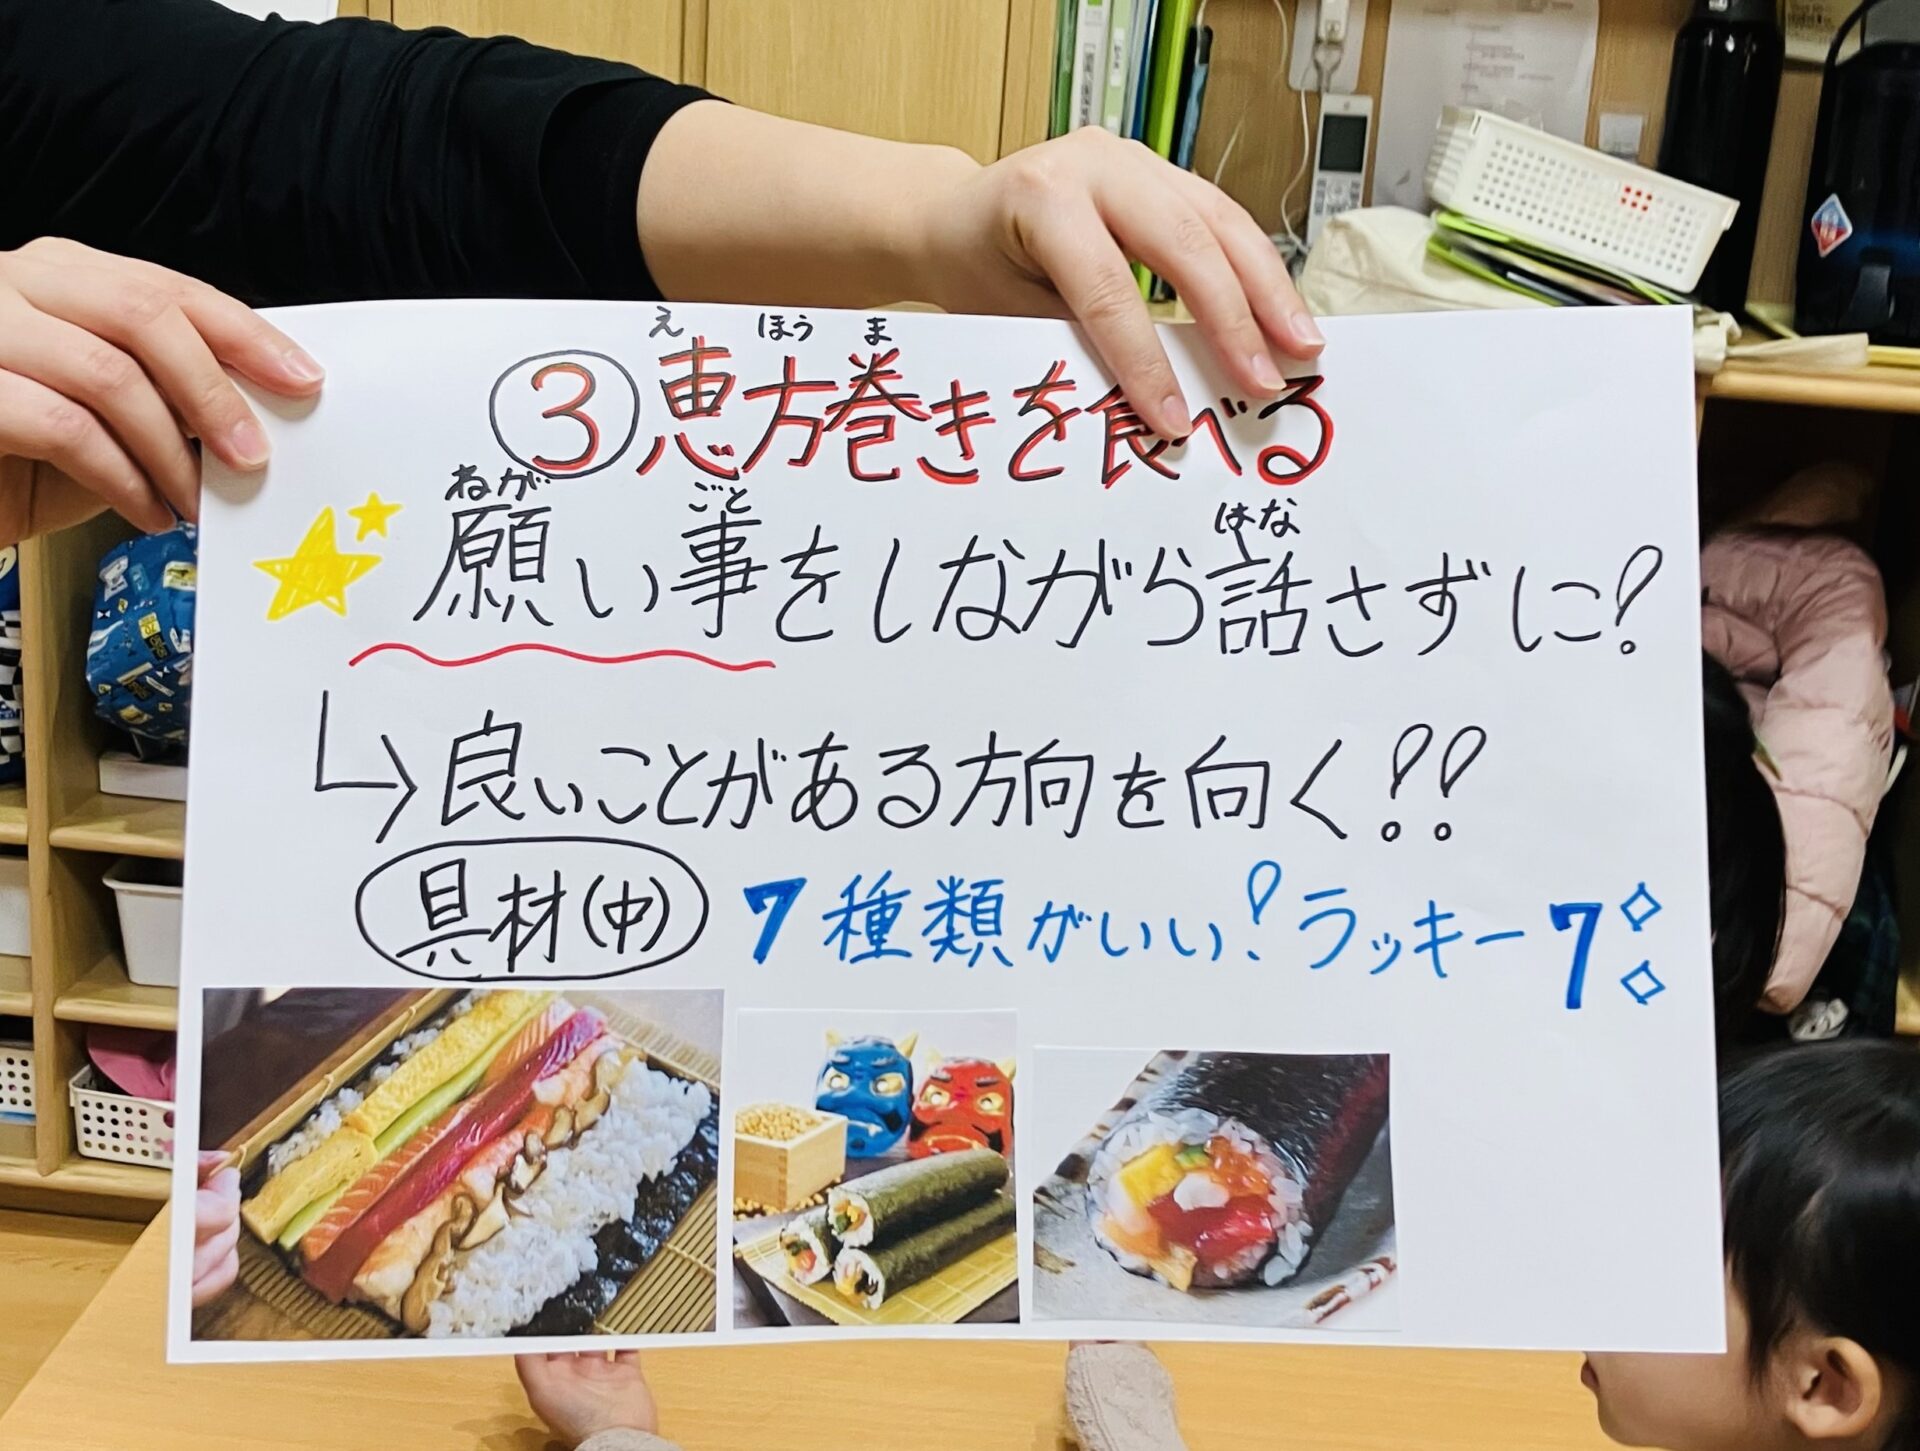 え ほう ま
③恵方巻きを食べる
ねが ごと はな
願い事をしながら話さずに!
↳良いことがある方向を向く!!
具材(中) 7種類がいい!ラッキー7